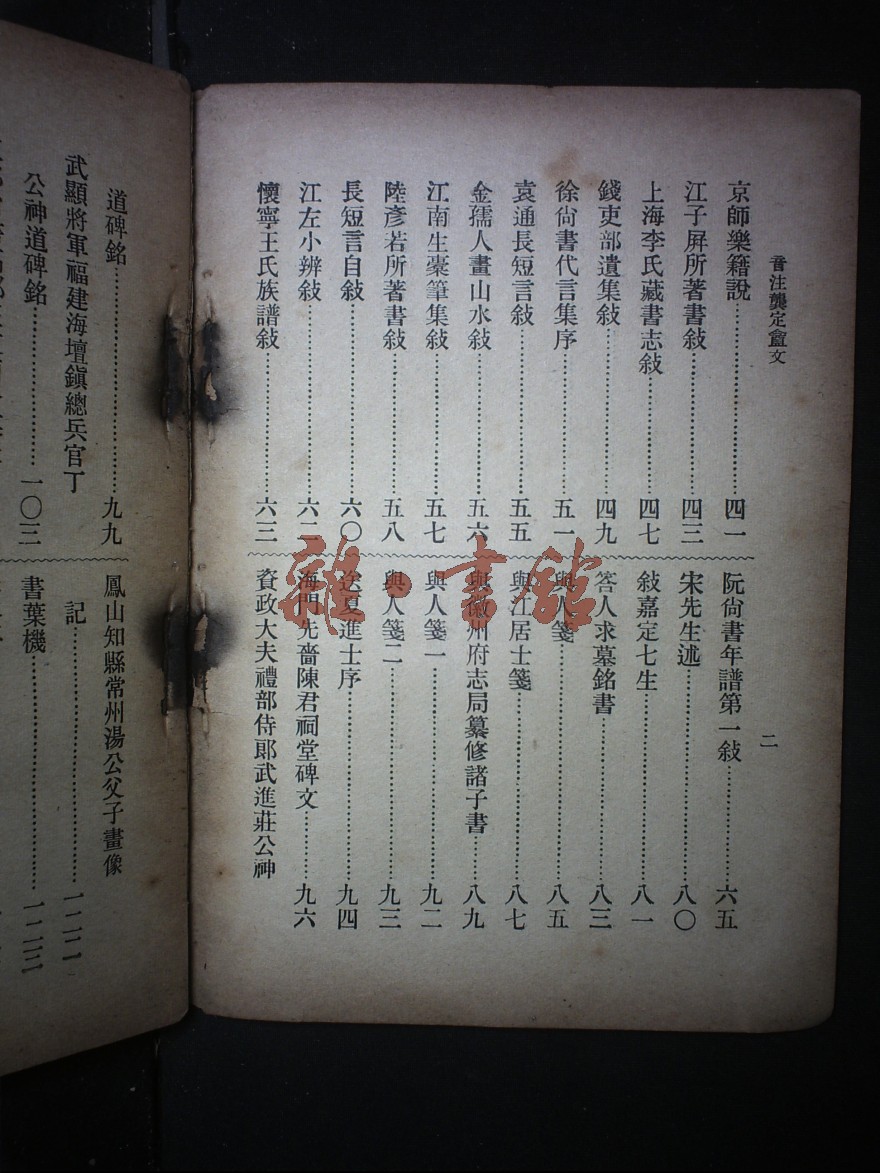 音注龔定盦文
二
京師樂籍說……四一
江子屏所著書敍……四三
上海李氏藏書志敍……四七
錢吏部遺集敍……四九
徐尙書代言集序……五一
袁通長短言敍……五五
金孺人畫山水敍……五六
江南生橐筆集敍……五七
陸彥若所著書敍……五八
長短言自敍……六〇
江左小辨敍……六二
懷寧王氏族譜敍……六三
阮尙書年譜第一敍……六五
宋先生述……八〇
敍嘉定七生……八一
答人求墓銘書……八三
與人箋……八五
與江居士箋……八七
與徽州府志局纂修諸子書……八九
與人箋一……九二
與人箋二……九三
送夏進士序……九四
海門先嗇陳君祠堂碑文……九六
資政大夫禮部侍郞武進莊公神
道碑銘……九九
武顯將軍福建海壇鎭總兵官丁
公神道碑銘……一〇三
鳳山知縣常州湯公父子畫像
記……一二二
書葉機……一二三
雜·書館